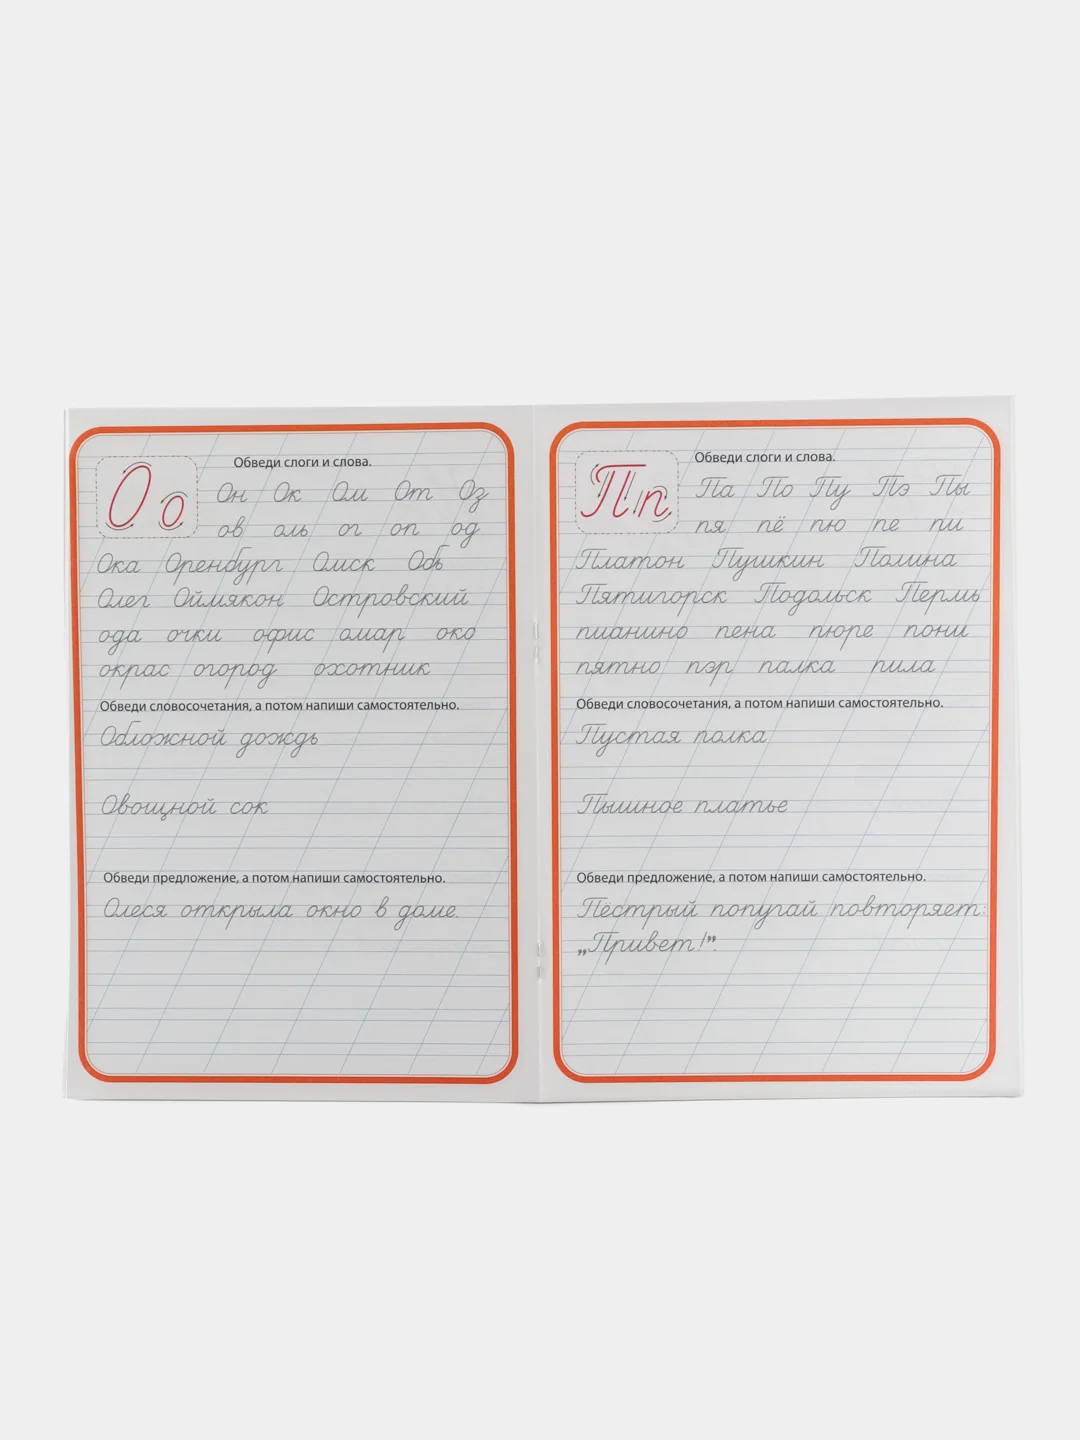 О о
Обведи слоги и слова.
Он Ок Ом От Оз
ов оль ог оп од
Ока Оренбург Омск Обь
Олег Оймякон Островский
ода очки офис омар око
окрас огород охотник
Обведи словосочетания, а потом напиши самостоятельно.
Обложной дождь
Овощной сок
Обведи предложение, а потом напиши самостоятельно.
Олеся открыла окно в доме.
П п
Обведи слоги и слова.
Па По Пу Пэ Пы
пя пё пю пе пи
Платон Пушкин Полина
Пятигорск Подольск Пермь
пианино пена пюре пони
пятно пэр палка пила
Обведи словосочетания, а потом напиши самостоятельно.
Пустая полка
Пышное платье
Обведи предложение, а потом напиши самостоятельно.
Пёстрый попугай повторяет:
„Привет!”.